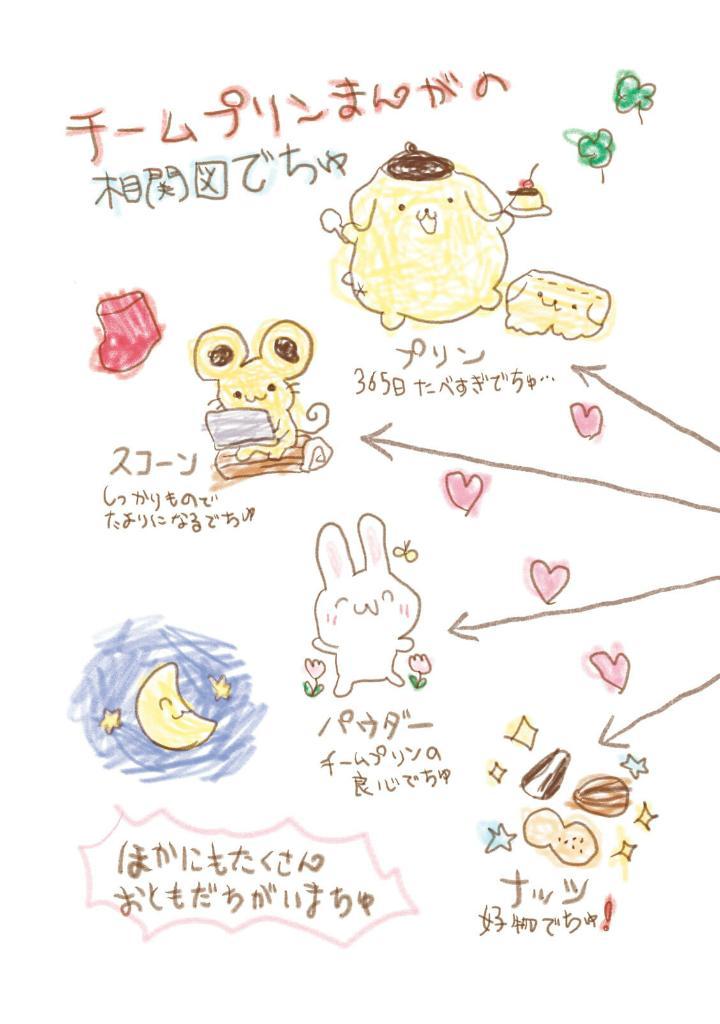 チームプリンまんがの
相関図でちゅ
プリン
365日 たべすぎでちゅ…
スコーン
しっかりもので
たよりになるでちゅ
パウダー
チームプリンの
良心でちゅ
ほかにもたくさん
おともだちがいまちゅ
ナッツ
好物でちゅ!